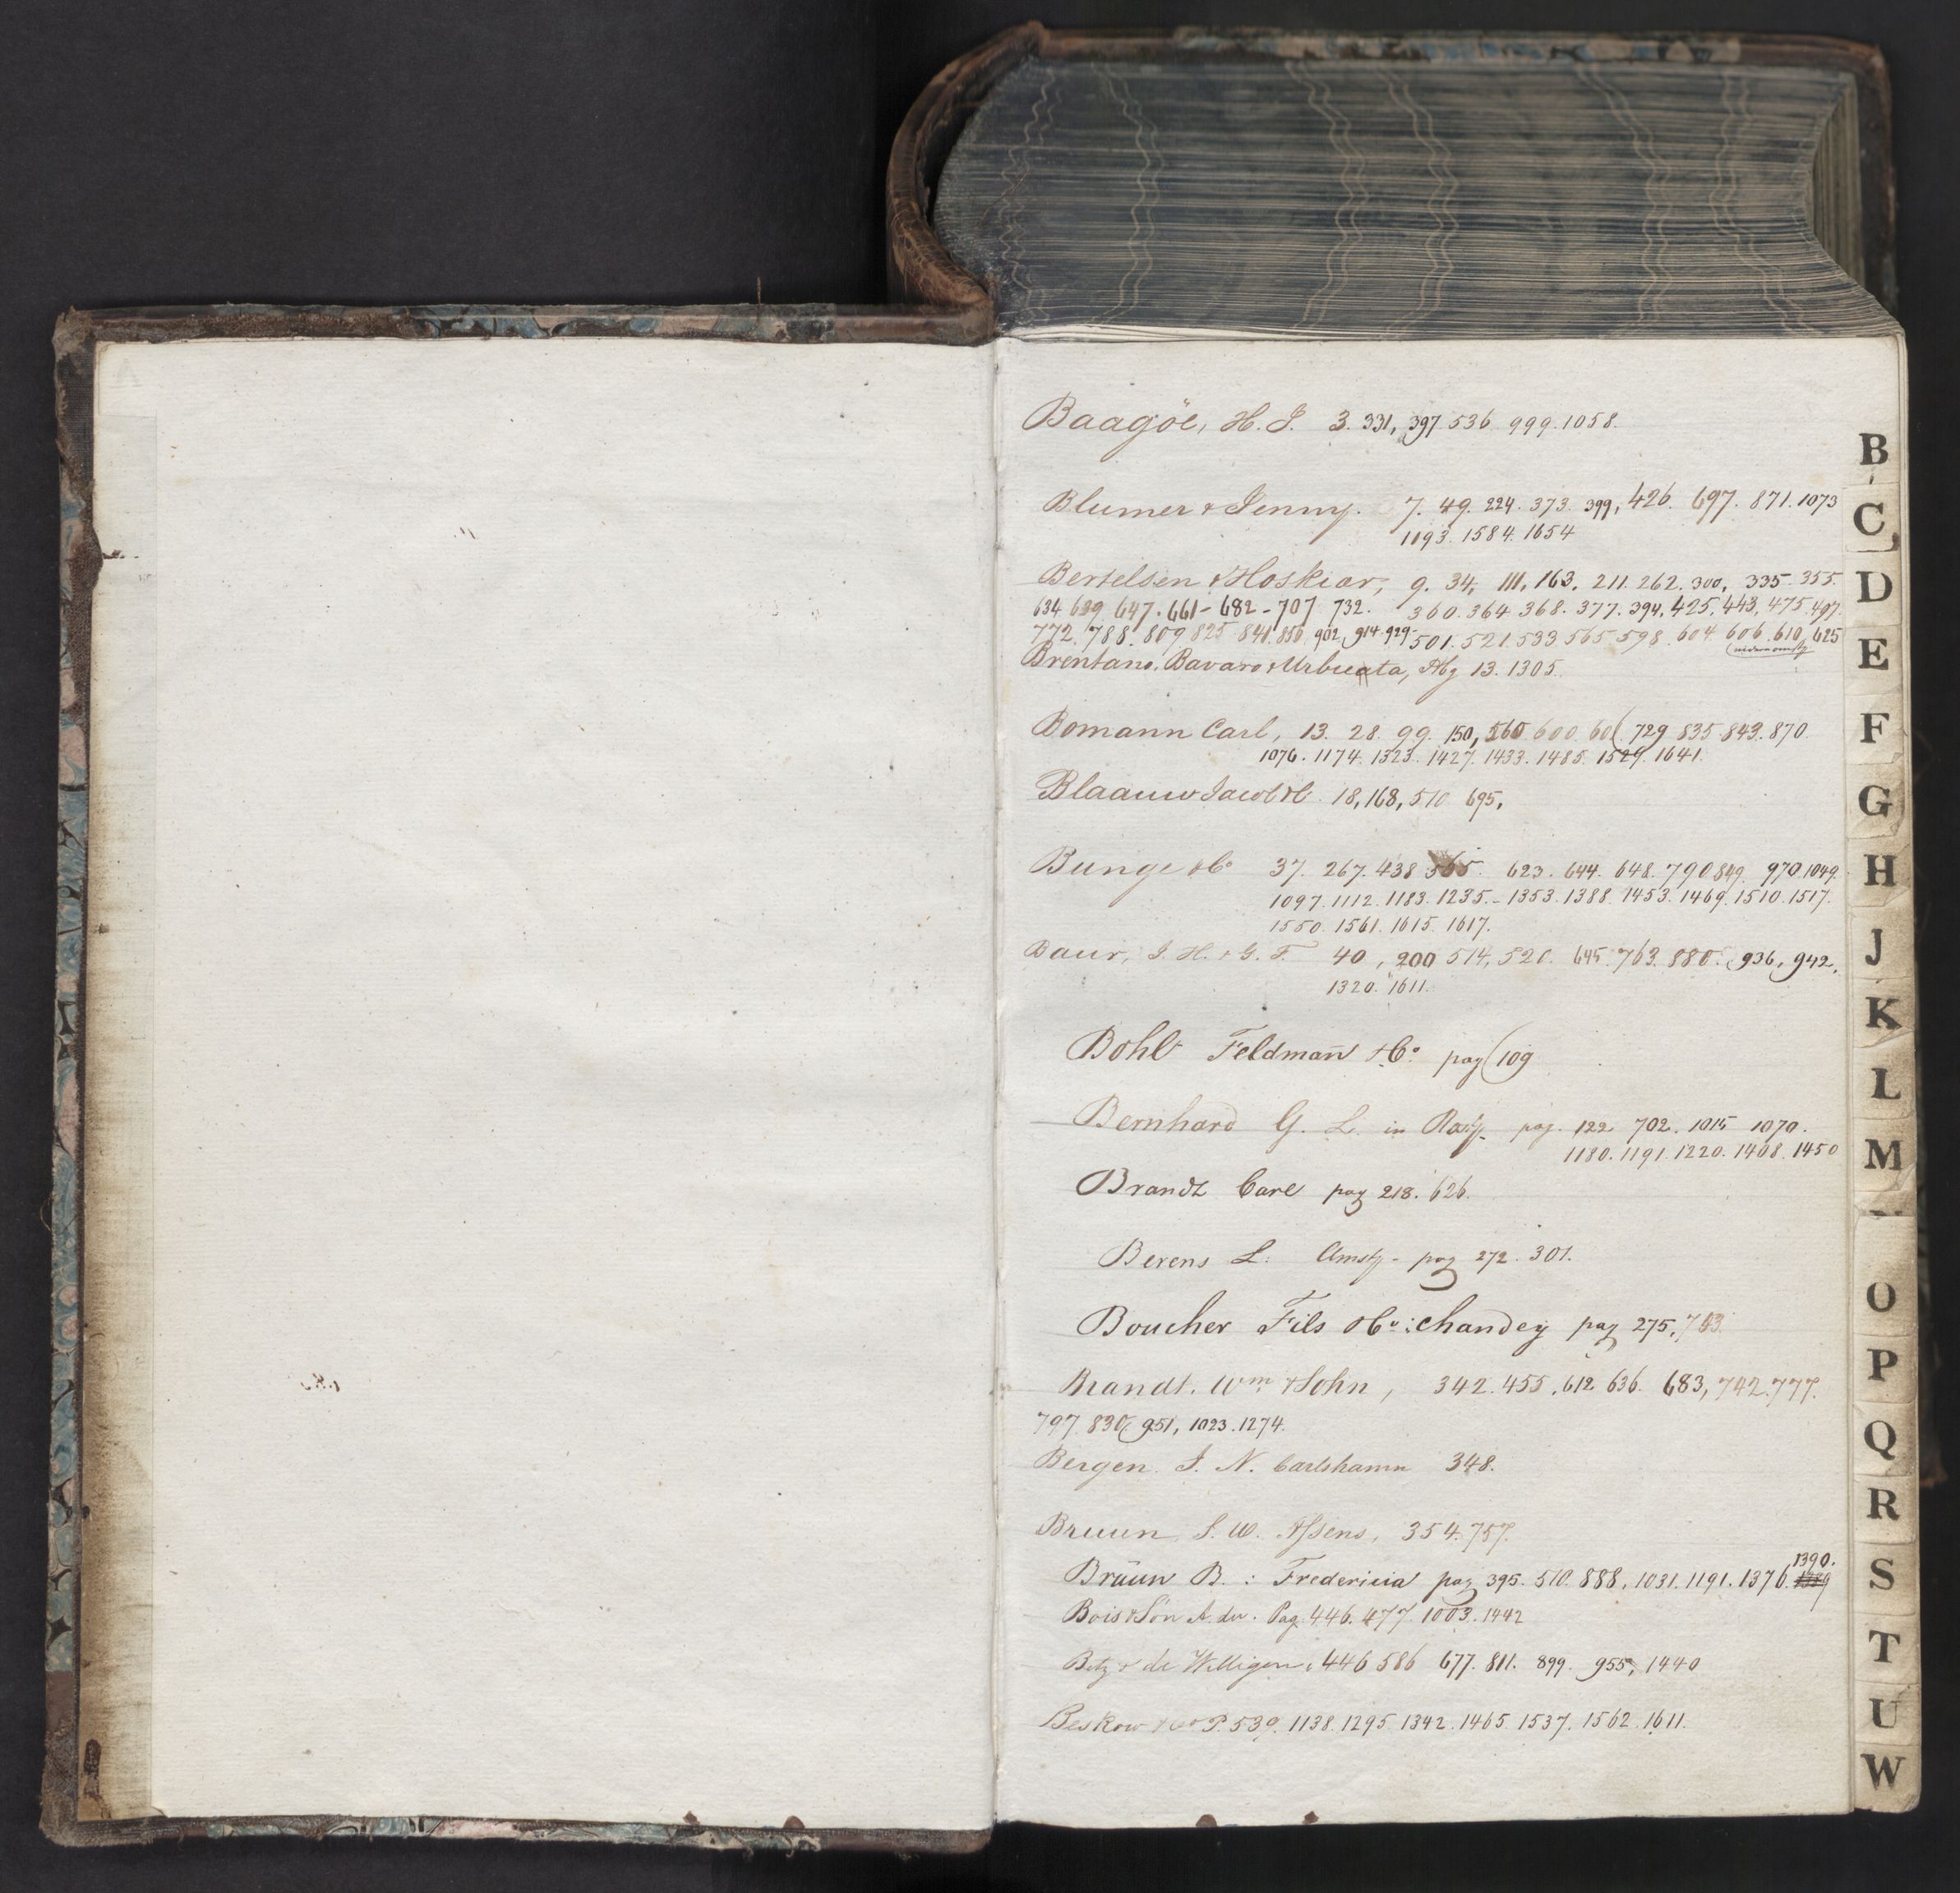 Baagöe, H. J. 3. 331, 397 536 999. 1058.
Blumer & Jenny. 7. 49. 224. 373. 399, 426. 697. 871. 1073
1193. 1584. 1654
Bertelsen & Hoskiær, 9. 34, 111, 163, 211. 262. 300, 335. 355.
634 639 647. 661 - 682 - 707 732. 360. 364. 368. 377. 394, 425, 443, 475. 497.
772. 788. 809 825 841. 850. 902, 914. 929. 501. 521. 533 565 598. 604 606. 610, 625
Brentano. Bavaro & Urbieta, Hbg 13. 1305.
Bomann Carl, 13. 28. 99. 150, 560 600 60 729 835 843. 870.
1076. 1174. 1323. 1427. 1433. 1485. 1529. 1641.
Blaauw Jacob & C 18, 168, 510 695,
Bunge & Co 37. 267. 438 565. 623. 644. 648. 790 849. 970. 1049.
1097. 1112. 1183. 1235. - 1353. 1388. 1453. 1469. 1510. 1517.
1550. 1561. 1615. 1617.
Baur, J. H. & G. F. 40, 200 514, 520. 645. 763. 880. 936, 942,
1320. 1611.
Bohl Feldman̄ & Co. pag 109
Bernhard G. L. in pag. 122 702. 1015 1070.
1180. 1191. 1220. 1408. 1450
Brandt Carl pag 218. 626.
Berens L. Amstg - pag 272. 301.
Boucher Fils & Co: Chandey pag 275, 703.
Brandt. Wm & Sohn, 342. 455. 612 636. 683, 742. 777.
797. 830 951, 1023. 1274.
Bergen. J. N. Carlshamn 348.
Bruun. S. W. Assens, 354. 757.
1390.
Brüun B. : Fredericia pag 395. 510. 888, 1031. 1191. 1376. 1389
Bois & Søn A. du. Pag. 446. 477. 1003. 1442
Betz & de Willigen, 446 586 677. 811. 899. 955, 1440
Beskow & Co P. 539. 1138. 1295. 1342. 1465. 1537. 1562. 1611.
B
C
D
E
F
G
H
J
K
L
M
O
P
Q
R
S
T
U
W